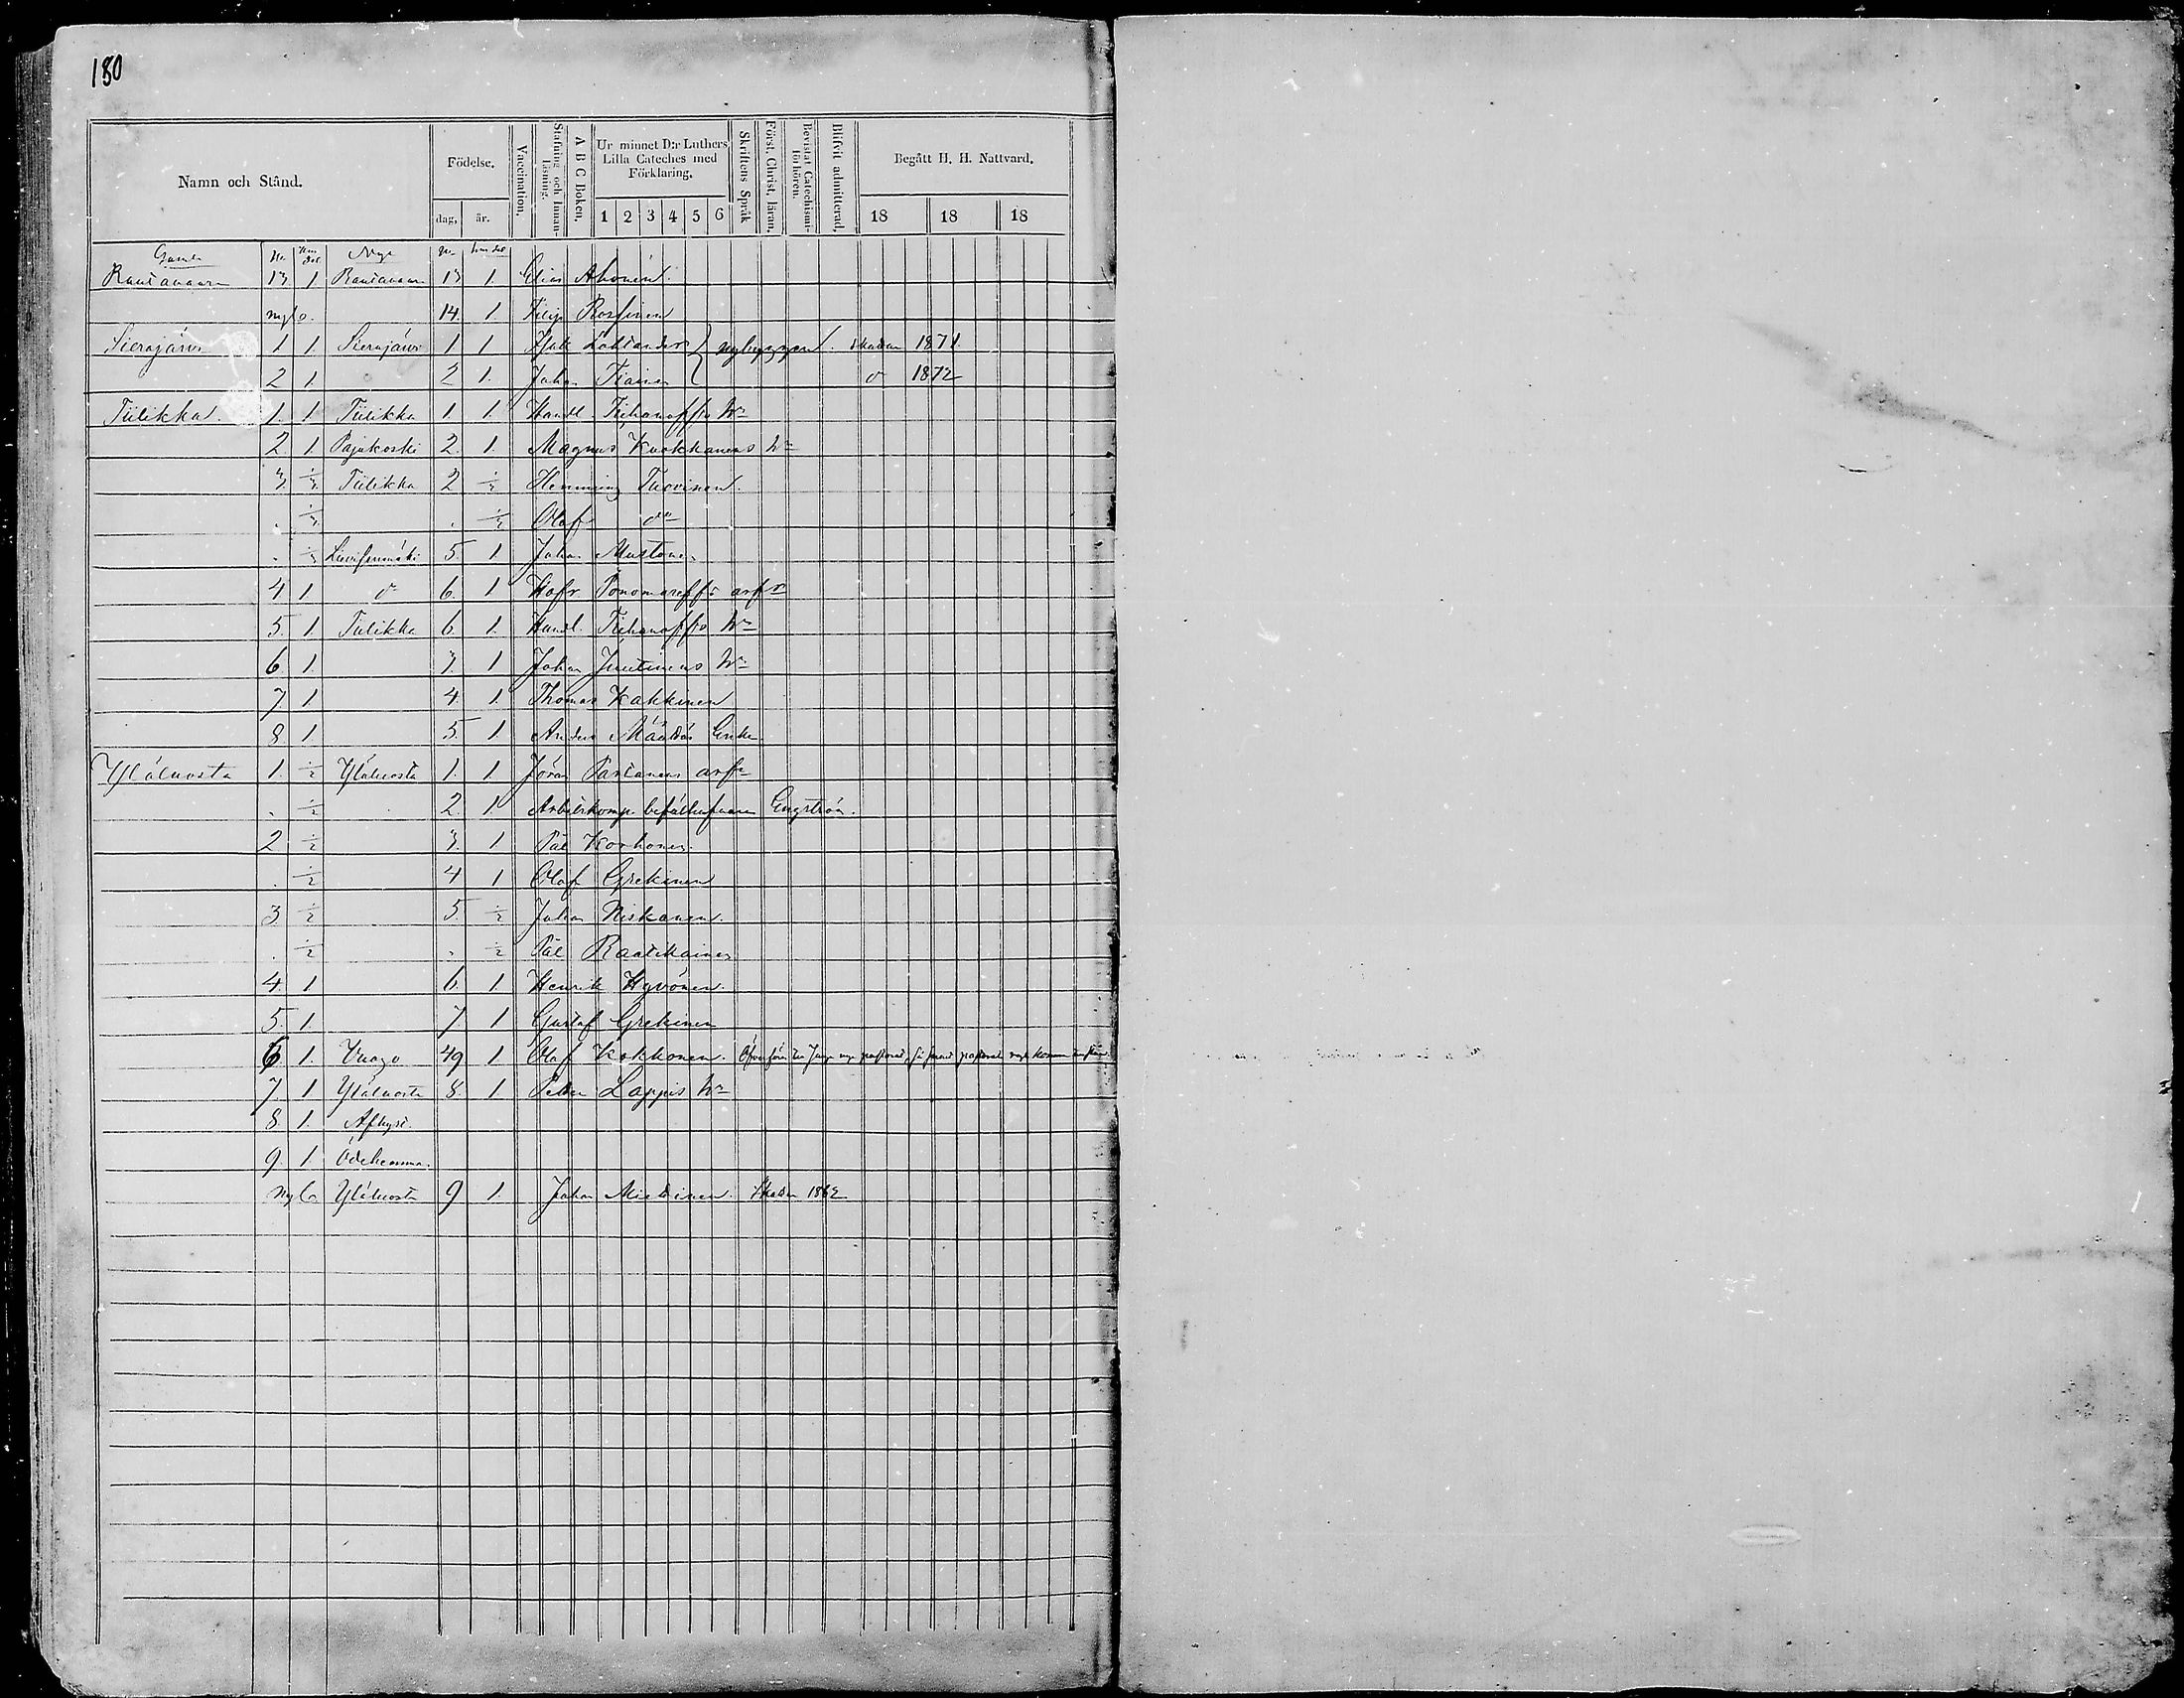 180
Namn och Stånd. Födelse. Vaccination. Stafning och Innanläsning. A B C Boken. Ur minnet D:r Luthers Lilla Cateches med Förklaring. Skriftens Språk Förest. Christ. läran. Bevistat Catechismiförhören. Blifvit admitterad. Begått H. H. Nattvard.
dag. år. 1 2 3 4 5 6 18 18 18
Gamla No Nya No
Rautavaara 13 1 Rautavaara 13 1. Elias Ahonen.
nyb. 14. 1 Filip Rossinen
Sierajärvi 1 1. Sierajärvi 1 1 Lähtander nybyggen. 1871.
2 1 2 1. Johan Tiainen d:o 1872
Tiilikka. 1. 1 Tiilikka 1. 1. Handl. Tichanoffs
2. 1 Pajukoski 2. 1. Magnus Kuokkanens
3 ½ Tiilikka 2 ½ Henning Tuovinen.
. ½ . ½ Olof d:o
. ½ 5. 1 Johan Mustonen
4 1 d:o 6. 1 Hofr. Ponomareffs arf:r
5. 1. Tiilikka 6. 1. Handl. Tichanoffs
6 1. 3. 1 Johan Juutinens
7 1 4. 1. Thomas Kakkinen
8 1 5. 1 Anders Määttäs Enka
Yläluosta 1. ½ Yläluosta 1. 1. Jöran Partanens arf:r
. ½ 2. 1. Engström.
2 ½ 3. 1 Pål Korhonen.
. ½ 4 1 Olof Grekinen
3 ½ 5. ½ Johan Niskanen.
. ½ . ½ Pål Raatikainen
4. 1 6. 1. Henrik Hyvönen.
5. 1. 7. 1 Gustaf Grekinen
6. 1. 49 1 Olof Kokkonen.
7. 1 Yläluosta 8. 1. Petter Lappis
8. 1. Afhyst.
9. 1. Ödehemman.
nyb. Yläluosta 9 1. Johan Miettinen. Skattn 1862